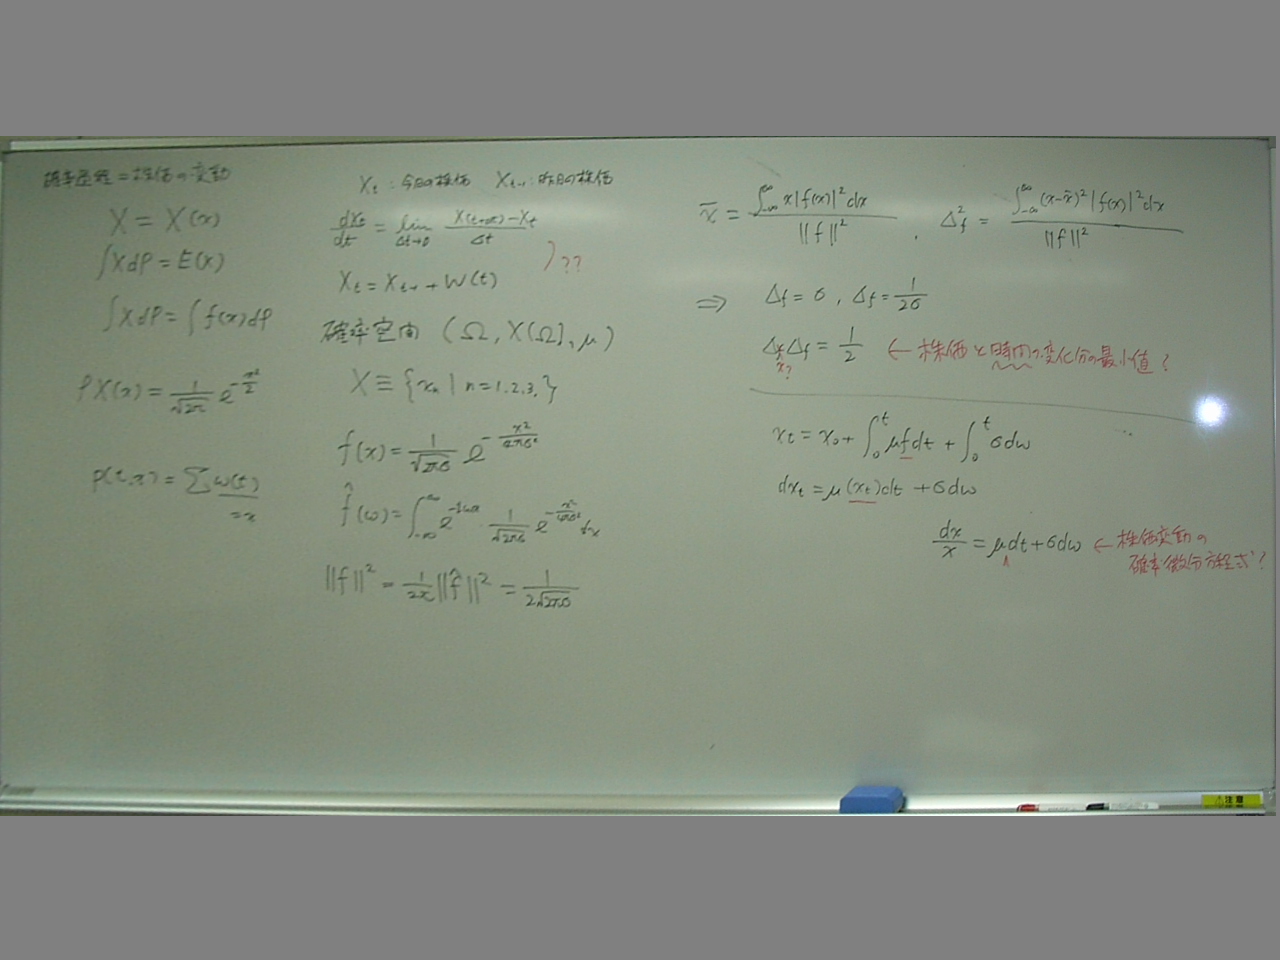 確率過程=株価の変動
X = X(x)
∫XdP = E(x)
∫XdP = ∫f(x)dP
PX(x) = 1/√2π e^{-x²/2}
P(t,x) = Σ W(t)
=x
Xt : 今日の株価 Xt-1 : 昨日の株価
dXt/dt = lim Δt→0 X(t+Δt)-Xt/Δt
Xt = Xt-1 + W(t)
) ??
確率空間 (Ω, X(Ω), μ)
X ≡ {xn | n=1,2,3,}
f(x) = 1/√2πσ e^{-x²/4πσ²}
f̂(ω) = ∫_{-∞}^{∞} e^{-iωx} · 1/√2πσ e^{-x²/4πσ²} dx
||f||² = 1/2π ||f̂||² = 1/2√2πσ
x̄ = ∫_{-∞}^{∞} x|f(x)|²dx / ||f||² , Δ²f = ∫_{-∞}^{∞} (x-x̄)²|f(x)|²dx / ||f||²
⇒ Δf = σ , Δf̂ = 1/2σ
ΔfΔf̂ = 1/2 ← 株価と時間の変化分の最小値?
x?
xt = x0 + ∫_0^t μfdt + ∫_0^t σdw
dxt = μ(xt)dt + σdw
dx/x = μdt + σdw ← 株価変動の
確率微分方程式?
注意